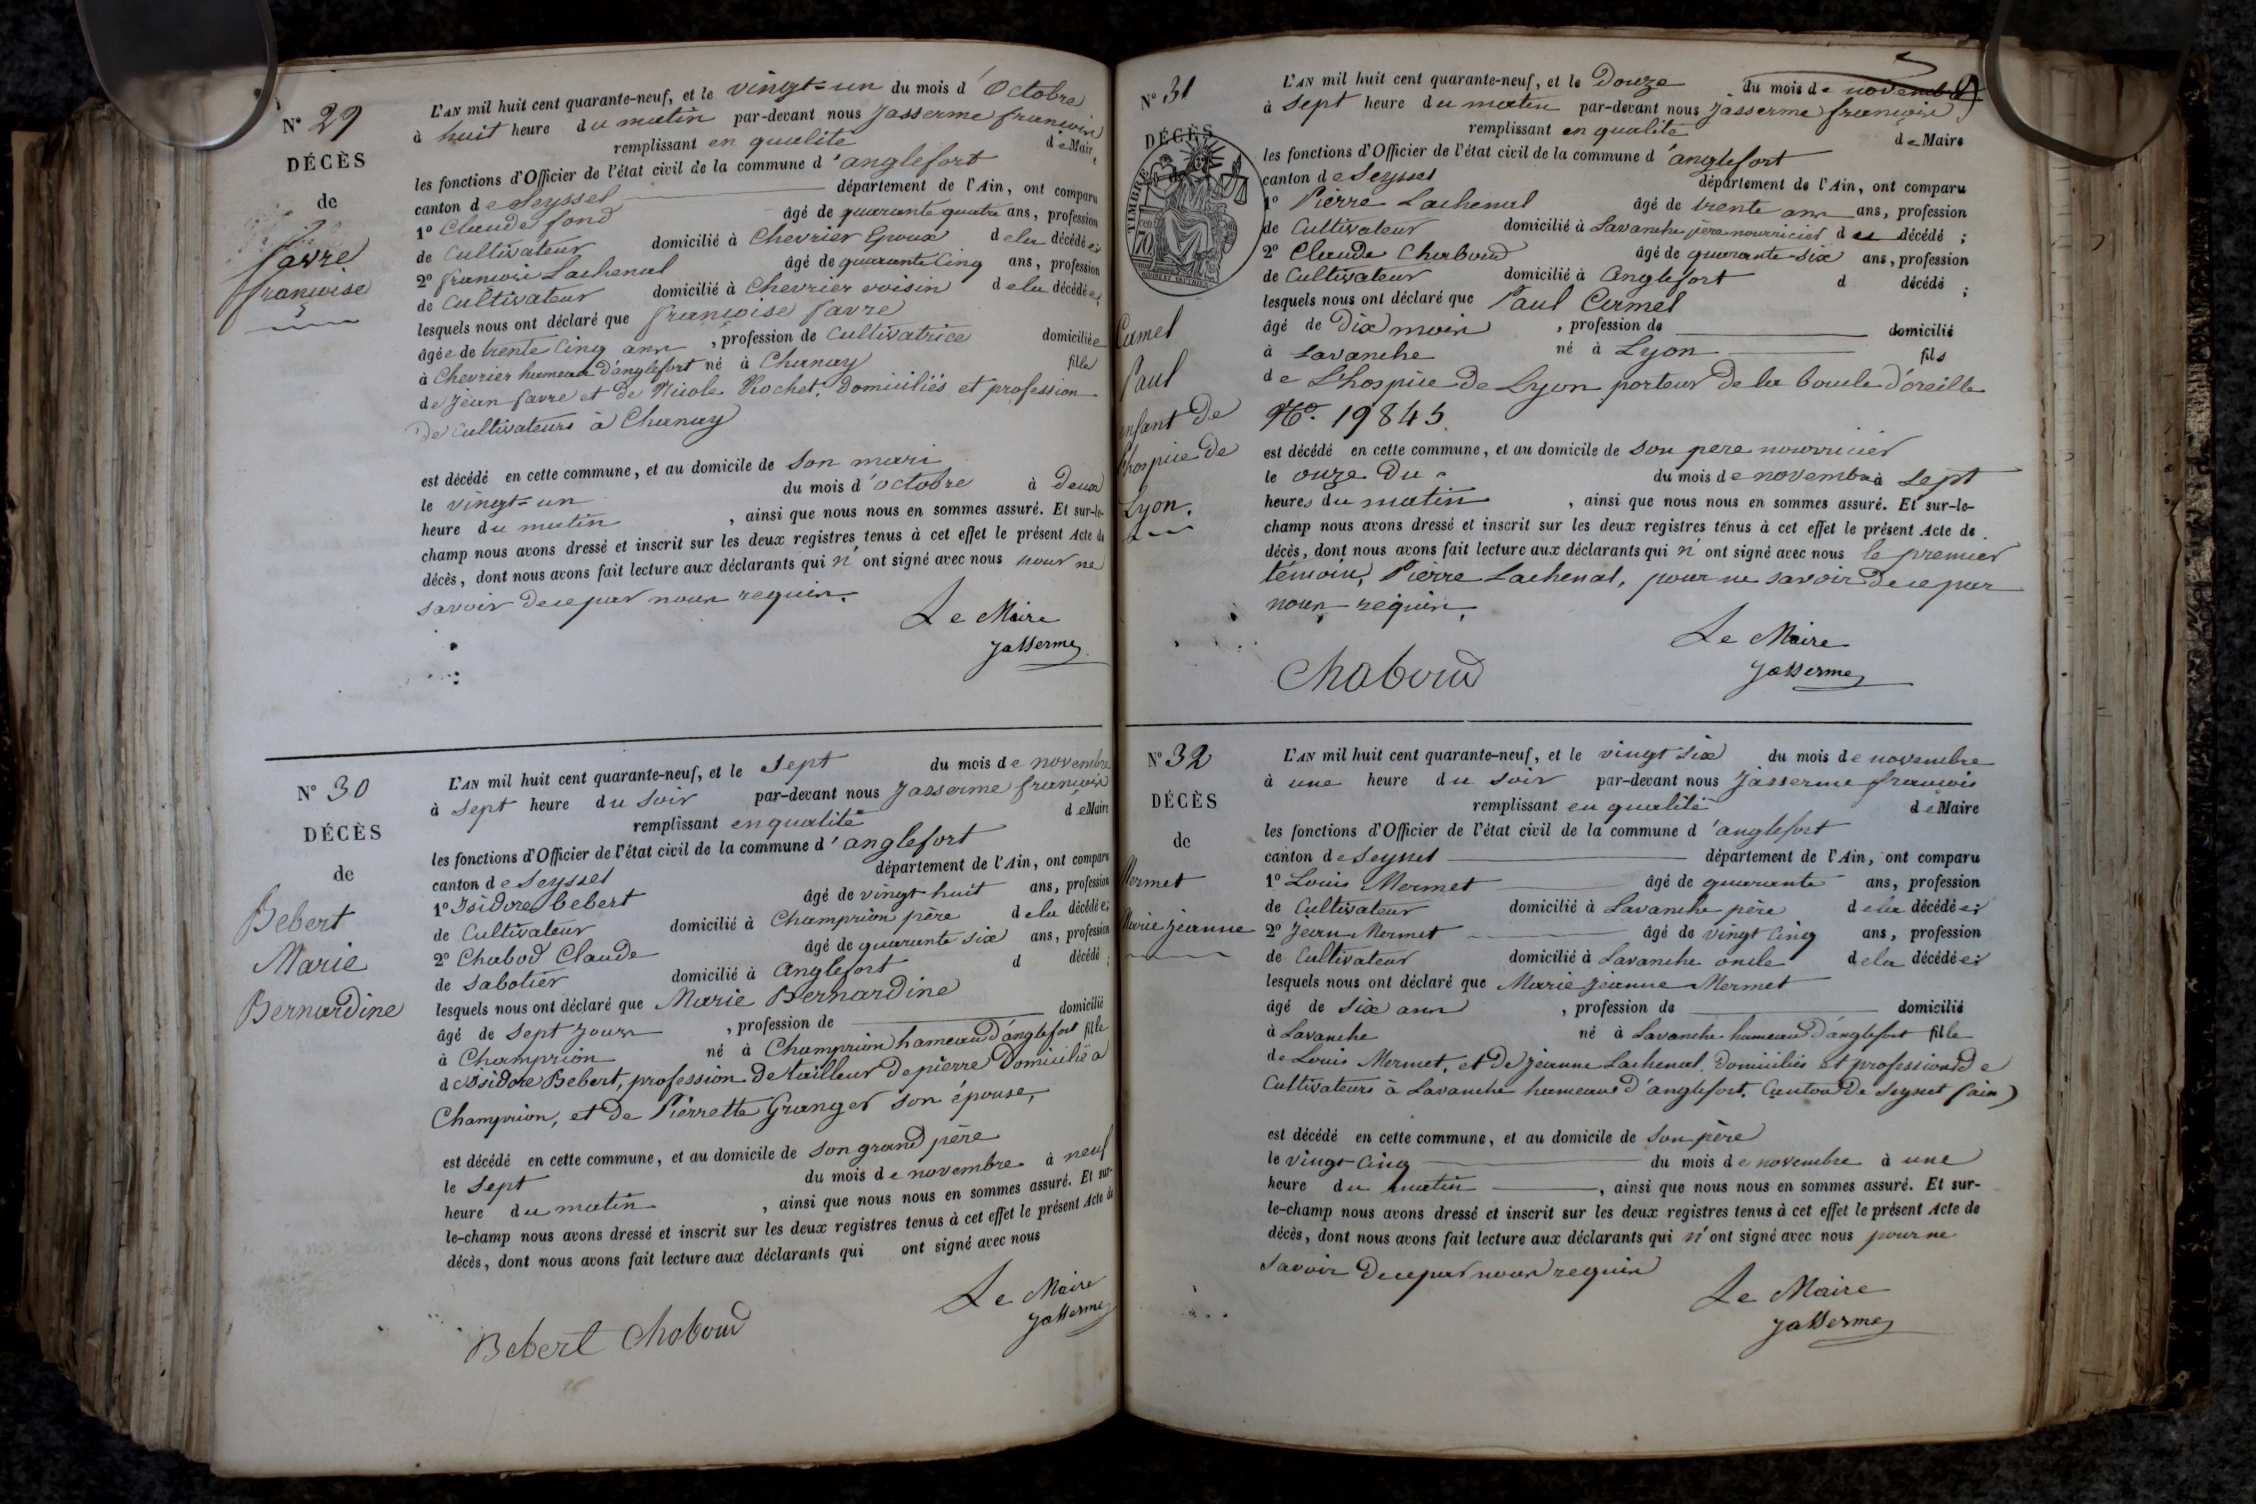 N° 29
DÉCÈS
de
favre
francoise
L'AN mil huit cent quarante-neuf, et le vingt-un du mois d'Octobre
à huit heure du matin par-devant nous Jasserme francois
remplissant en qualité de Maire
les fonctions d'Officier de l'état civil de la commune d'anglefort
canton de Seyssel département de l'Ain, ont comparu
1° Claude fond âgé de quarante quatre ans, profession
de Cultivateur domicilié à Chevrier Epoux de la décédée;
2° francois Lachenal âgé de quarante Cinq ans, profession
de Cultivateur domicilié à Chevrier voisin de la décédée;
lesquels nous ont déclaré que françoise favre
âgée de trente Cinq ans , profession de Cultivatrice domiciliée
à Chevrier hameau d'anglefort né à Chanay fille
de Jean favre et de Nicole Rochet, domiciliés et profession
de Cultivateurs à Chanay
est décédé en cette commune, et au domicile de son mari
le vingt-un du mois d'octobre à deux
heure du matin , ainsi que nous nous en sommes assuré. Et sur-le-
champ nous avons dressé et inscrit sur les deux registres tenus à cet effet le présent Acte de
décès, dont nous avons fait lecture aux déclarants qui n'ont signé avec nous pour ne
savoir de ce par nous requis.
Le Maire
Jasserme
N° 30
DÉCÈS
de
Bebert
Marie
Bernardine
L'AN mil huit cent quarante-neuf, et le sept du mois de novembre
à sept heure du soir par-devant nous Jasserme françois
remplissant en qualité de Maire
les fonctions d'Officier de l'état civil de la commune d'anglefort
canton de Seyssel département de l'Ain, ont comparu
1° Isidore bebert âgé de vingt huit ans, profession
de Cultivateur domicilié à Champrion père de la décédée;
2° Chabod Claude âgé de quarante six ans, profession
de Sabotier domicilié à Anglefort d décédé ;
lesquels nous ont déclaré que Marie Bernardine
âgé de sept jours , profession de domicilié
à Champrion né à Champrion hameau d'anglefort fille
d'Isidore Bebert, profession de tailleur de pierre Domicilié a
Champrion, et de Pierrette Granger son épouse,
est décédé en cette commune, et au domicile de son grand père
le sept du mois de novembre à neuf
heure du matin , ainsi que nous nous en sommes assuré. Et sur-
le-champ nous avons dressé et inscrit sur les deux registres tenus à cet effet le présent Acte de
décès, dont nous avons fait lecture aux déclarants qui ont signé avec nous
Le Maire
Jasserme
Bebert Chaboud
N° 31
DÉCÈS
TIMBRE
70
Camel
Paul
enfant de
l'hospice de
Lyon.
L'AN mil huit cent quarante-neuf, et le Douze du mois de novembre
à sept heure du matin par-devant nous Jasserme françois
remplissant en qualité de Maire
les fonctions d'Officier de l'état civil de la commune d'anglefort
canton de Seyssel département de l'Ain, ont comparu
1° Pierre Lachenal âgé de trente ans ans, profession
de Cultivateur domicilié à Lavanche pere nourricier du décédé ;
2° Claude Chaboud âgé de quarante-six ans, profession
de Cultivateur domicilié à Anglefort d décédé ;
lesquels nous ont déclaré que Paul Camel
âgé de Dix mois , profession de domicilié
à Lavanche né à Lyon fils
de L'hospice de Lyon porteur de la boucle d'oreille
N°. 19845.
est décédé en cette commune, et au domicile de son pere nourricier
le onze du du mois de novembre à sept
heures du matin , ainsi que nous nous en sommes assuré. Et sur-le-
champ nous avons dressé et inscrit sur les deux registres tenus à cet effet le présent Acte de
décès, dont nous avons fait lecture aux déclarants qui n'ont signé avec nous le premier
témoin, Pierre Lachenal, pour ne savoir de ce par
nous requis.
Le Maire
Jasserme
Chaboud
N° 32
DÉCÈS
de
Mermet
Marie jeanne
L'AN mil huit cent quarante-neuf, et le vingt six du mois de novembre
à une heure du soir par-devant nous Jasserme françois
remplissant en qualité de Maire
les fonctions d'Officier de l'état civil de la commune d'anglefort
canton de Seyssel département de l'Ain, ont comparu
1° Louis Mermet âgé de quarante ans, profession
de Cultivateur domicilié à Lavanche père de la décédée;
2° Jean Mermet âgé de vingt Cinq ans, profession
de Cultivateur domicilié à Lavanche oncle de la décédée;
lesquels nous ont déclaré que Marie jeanne Mermet
âgé de six ans , profession de domicilié
à Lavanche né à Lavanche hameau d'anglefort fille
de Louis Mermet, et de Jeanne Lachenal, domiciliés et profession de
Cultivateurs à Lavanche hameau d'anglefort, Canton de Seyssel (ain)
est décédé en cette commune, et au domicile de son père
le vingt-Cinq du mois de novembre à une
heure du matin , ainsi que nous nous en sommes assuré. Et sur-
le-champ nous avons dressé et inscrit sur les deux registres tenus à cet effet le présent Acte de
décès, dont nous avons fait lecture aux déclarants qui n'ont signé avec nous pour ne
savoir de ce par nous requis
Le Maire
Jasserme